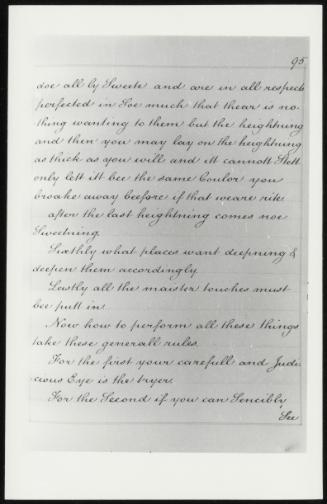 95
doe all by Sweete and are in all respects
perfected in Soe much that thear is no-
thing wanting to them but the heightning
and then you may lay on the heightning
as thick as you will and itt cannott
only lett itt bee the same Coulor you
broake away beefore if that weare rite
after the last heightning comes noe
Sweetning.
Sixthly what places want deepning &
deepen them accordingly.
Lastly all the maister touches must
bee putt in.
Now how to perform all these things
take these generall rules.
For the first your carefull and Judi-
cious Eye is the tryer.
For the Second if you can Sencibly
See